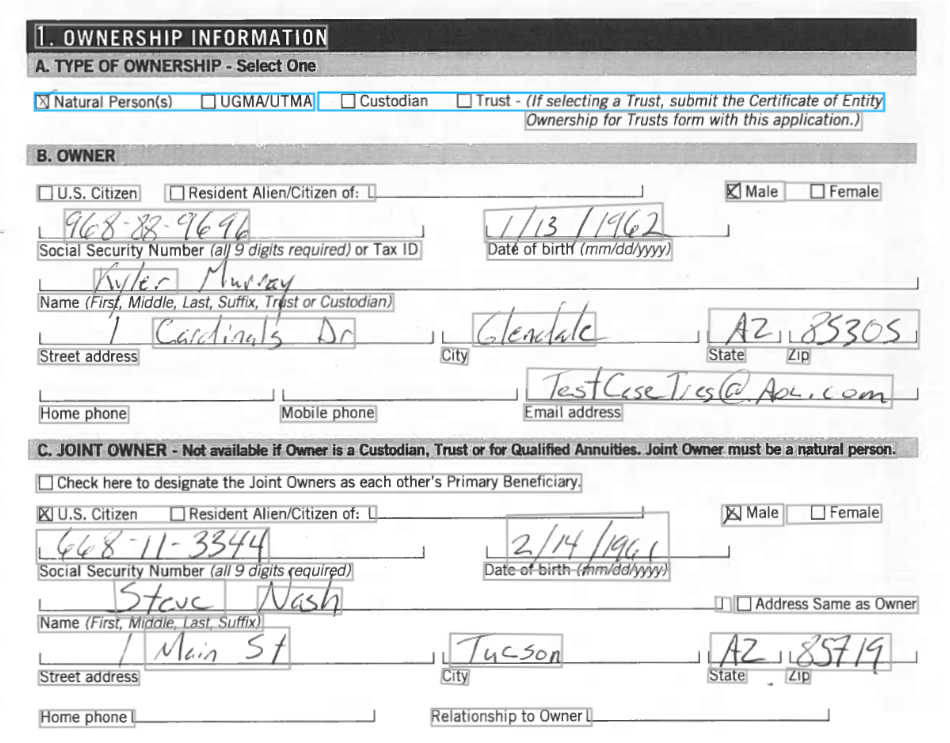 1. OWNERSHIP INFORMATION
A. TYPE OF OWNERSHIP - Select One
☒ Natural Person(s) ☐ UGMA/UTMA ☐ Custodian ☐ Trust - (If selecting a Trust, submit the Certificate of Entity
Ownership for Trusts form with this application.)
B. OWNER
☐ U.S. Citizen ☐ Resident Alien/Citizen of: ☒ Male ☐ Female
968-88-9696 1/13/1962
Social Security Number (all 9 digits required) or Tax ID Date of birth (mm/dd/yyyy)
Kyler Murray
Name (First, Middle, Last, Suffix, Trust or Custodian)
1 Cardinals Dr Glendale AZ 85305
Street address City State Zip
TestCaseTres@Aol.com
Home phone Mobile phone Email address
C. JOINT OWNER - Not available if Owner is a Custodian, Trust or for Qualified Annuities. Joint Owner must be a natural person.
☐ Check here to designate the Joint Owners as each other's Primary Beneficiary.
☒ U.S. Citizen ☐ Resident Alien/Citizen of: ☒ Male ☐ Female
668-11-3344 2/14/1961
Social Security Number (all 9 digits required) Date of birth (mm/dd/yyyy)
Steve Nash ☐ Address Same as Owner
Name (First, Middle, Last, Suffix)
1 Main St Tucson AZ 85719
Street address City State Zip
Home phone Relationship to Owner